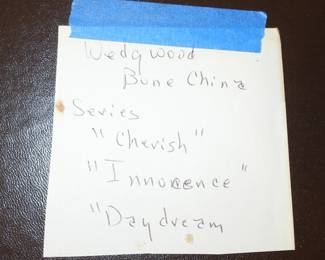 Wedgwood
Bone China
Series
"Cherish"
"Innocence"
"Daydream